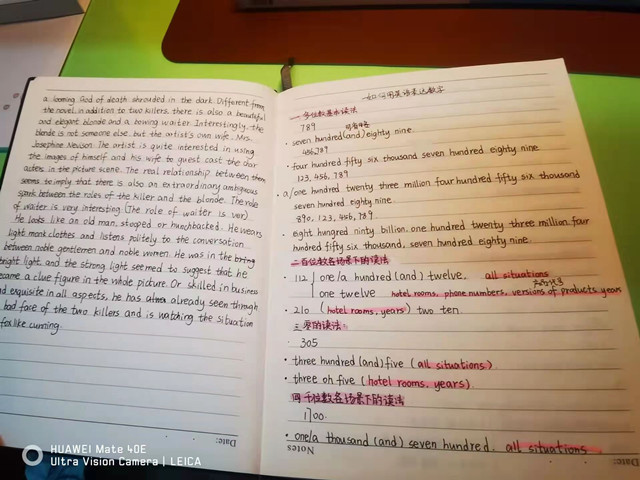 a looming God of death shrouded in the dark. Different from
the novel, in addition to two killers, there is also a beautiful
and elegant blonde and a bowing waiter. Interestingly, the
blonde is not someone else, but the artist's own wife, Mrs.
Josephine Nevison. The artist is quite interested in using
the images of himself and his wife to guest cast the char
acters in the picture scene. The real relationship between them
seems to imply that there is also an extraordinary ambiguous
spark between the roles of the killer and the blonde. The role
of waiter is very interesting. (The role of waiter is ver).
He looks like an old man, stooped or hunchbacked. He wears
light monk clothes and listens politely to the conversation
between noble gentlemen and noble women. He was in the bring
bright light and the strong light seemed to suggest that he
came a clue figure in the whole picture. Or skilled in business
nd exquisite in all aspects, he has already seen through
bad face of the two killers and is watching the situation
fox like cunning.
Date:
如何用英语表达数字
一.多位数基本读法
789 可省略
· seven hundred (and) eighty nine.
456,789
· four hundred fifty six thousand seven hundred eighty nine
123, 456, 789
· a/one hundred twenty three million four hundred fifty six thousand
seven hundred eighty nine.
890, 123, 456, 789
· eight hungred ninty billion, one hundred twenty three million four
hundred fifty six thousand, seven hundred eighty nine.
二百位数各场景下的读法
· 112 { one/a hundred (and) twelve. all situations
one twelve hotel rooms, phone numbers, versions of products, years
· 210 (hotel rooms, years) two ten.
三.零的读法
305
· three hundred (and) five (all situations)
· three oh five (hotel rooms. years)
四 千位数各场景下的读法
1700
· one/a thousand (and) seven hundred. all situations
Notes
Date:
HUAWEI Mate 40E
Ultra Vision Camera | LEICA